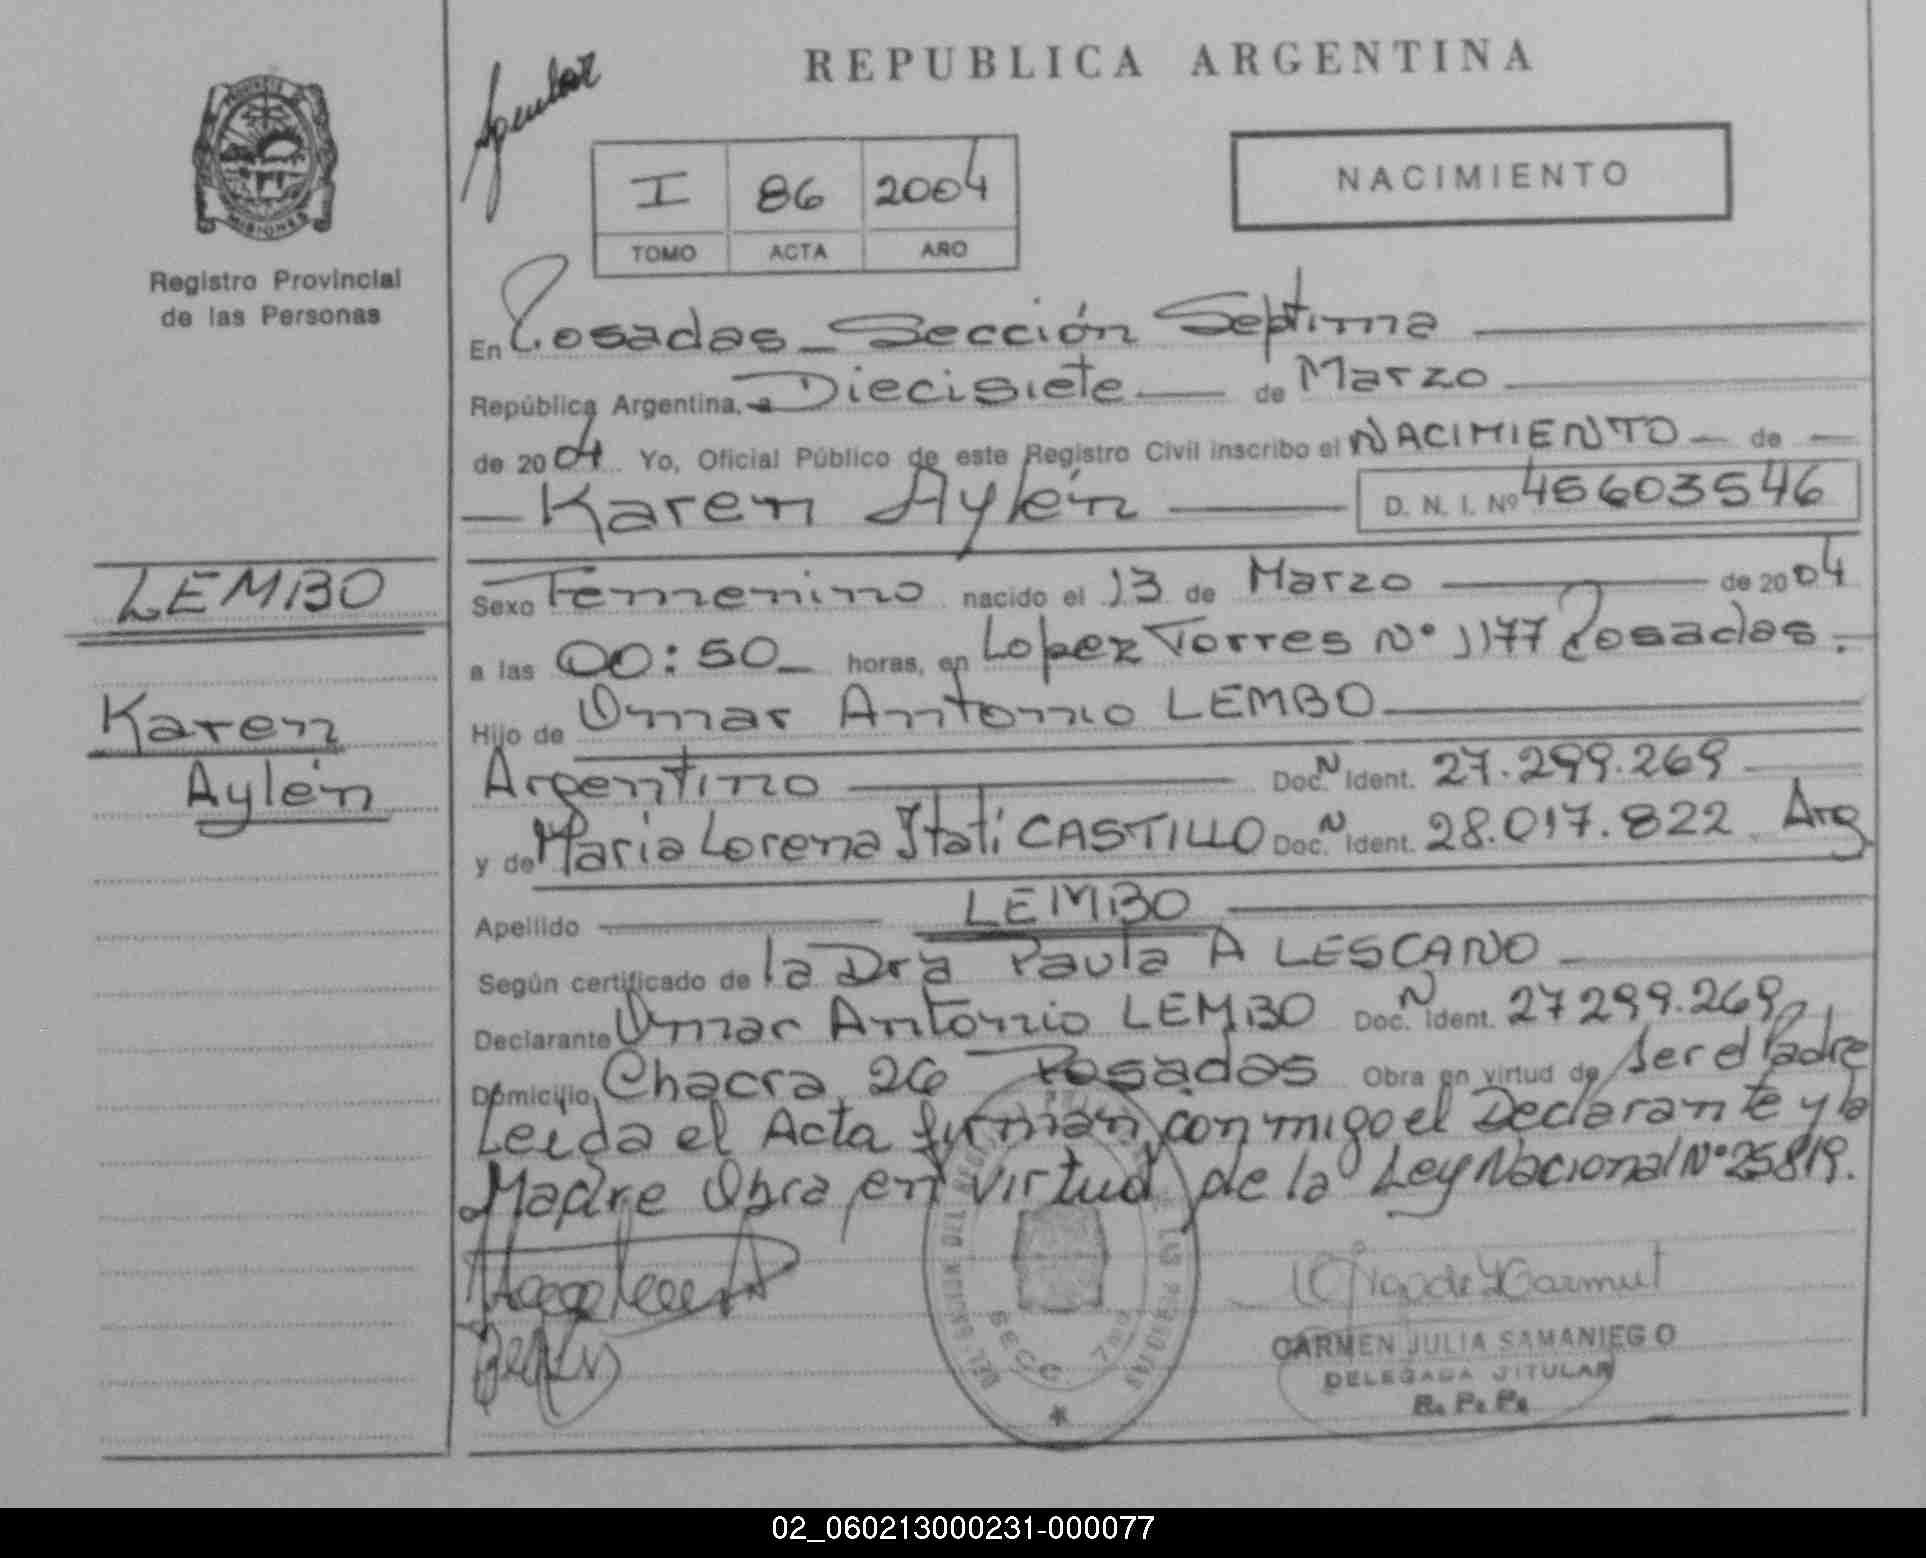 REPUBLICA ARGENTINA
PROVINCIA DE
MISIONES
Registro Provincial
de las Personas
I 86 2004
TOMO ACTA AÑO
NACIMIENTO
En Posadas - Sección Septima
República Argentina, a Diecisiete de Marzo
de 2004 Yo, Oficial Público de este Registro Civil inscribo el NACIMIENTO de
Karen Aylén D. N. I. Nº 45603546
LEMBO
Karen
Aylén
Sexo Femenino nacido el 13 de Marzo de 2004
a las 00:50 horas, en Lopez Torres N° 1177 Posadas.
Hijo de Omar Antonio LEMBO
Argentino Doc. N Ident. 27.299.269
y de Maria Lorena Itati CASTILLO Doc. N Ident. 28.017.822 Arg
Apellido LEMBO
Según certificado de la Dra Paula A LESCANO
Declarante Omar Antonio LEMBO Doc. N Ident. 27299.269
Domicilio Chacra 26 Posadas Obra en virtud de ser el Padre
Leida el Acta firman conmigo el Declarante y la
Madre Obra en virtud de la Ley Nacional N° 25819.
SECC. 7ma
CARMEN JULIA SAMANIEGO
DELEGADA TITULAR
R. P. P.
02_060213000231-000077